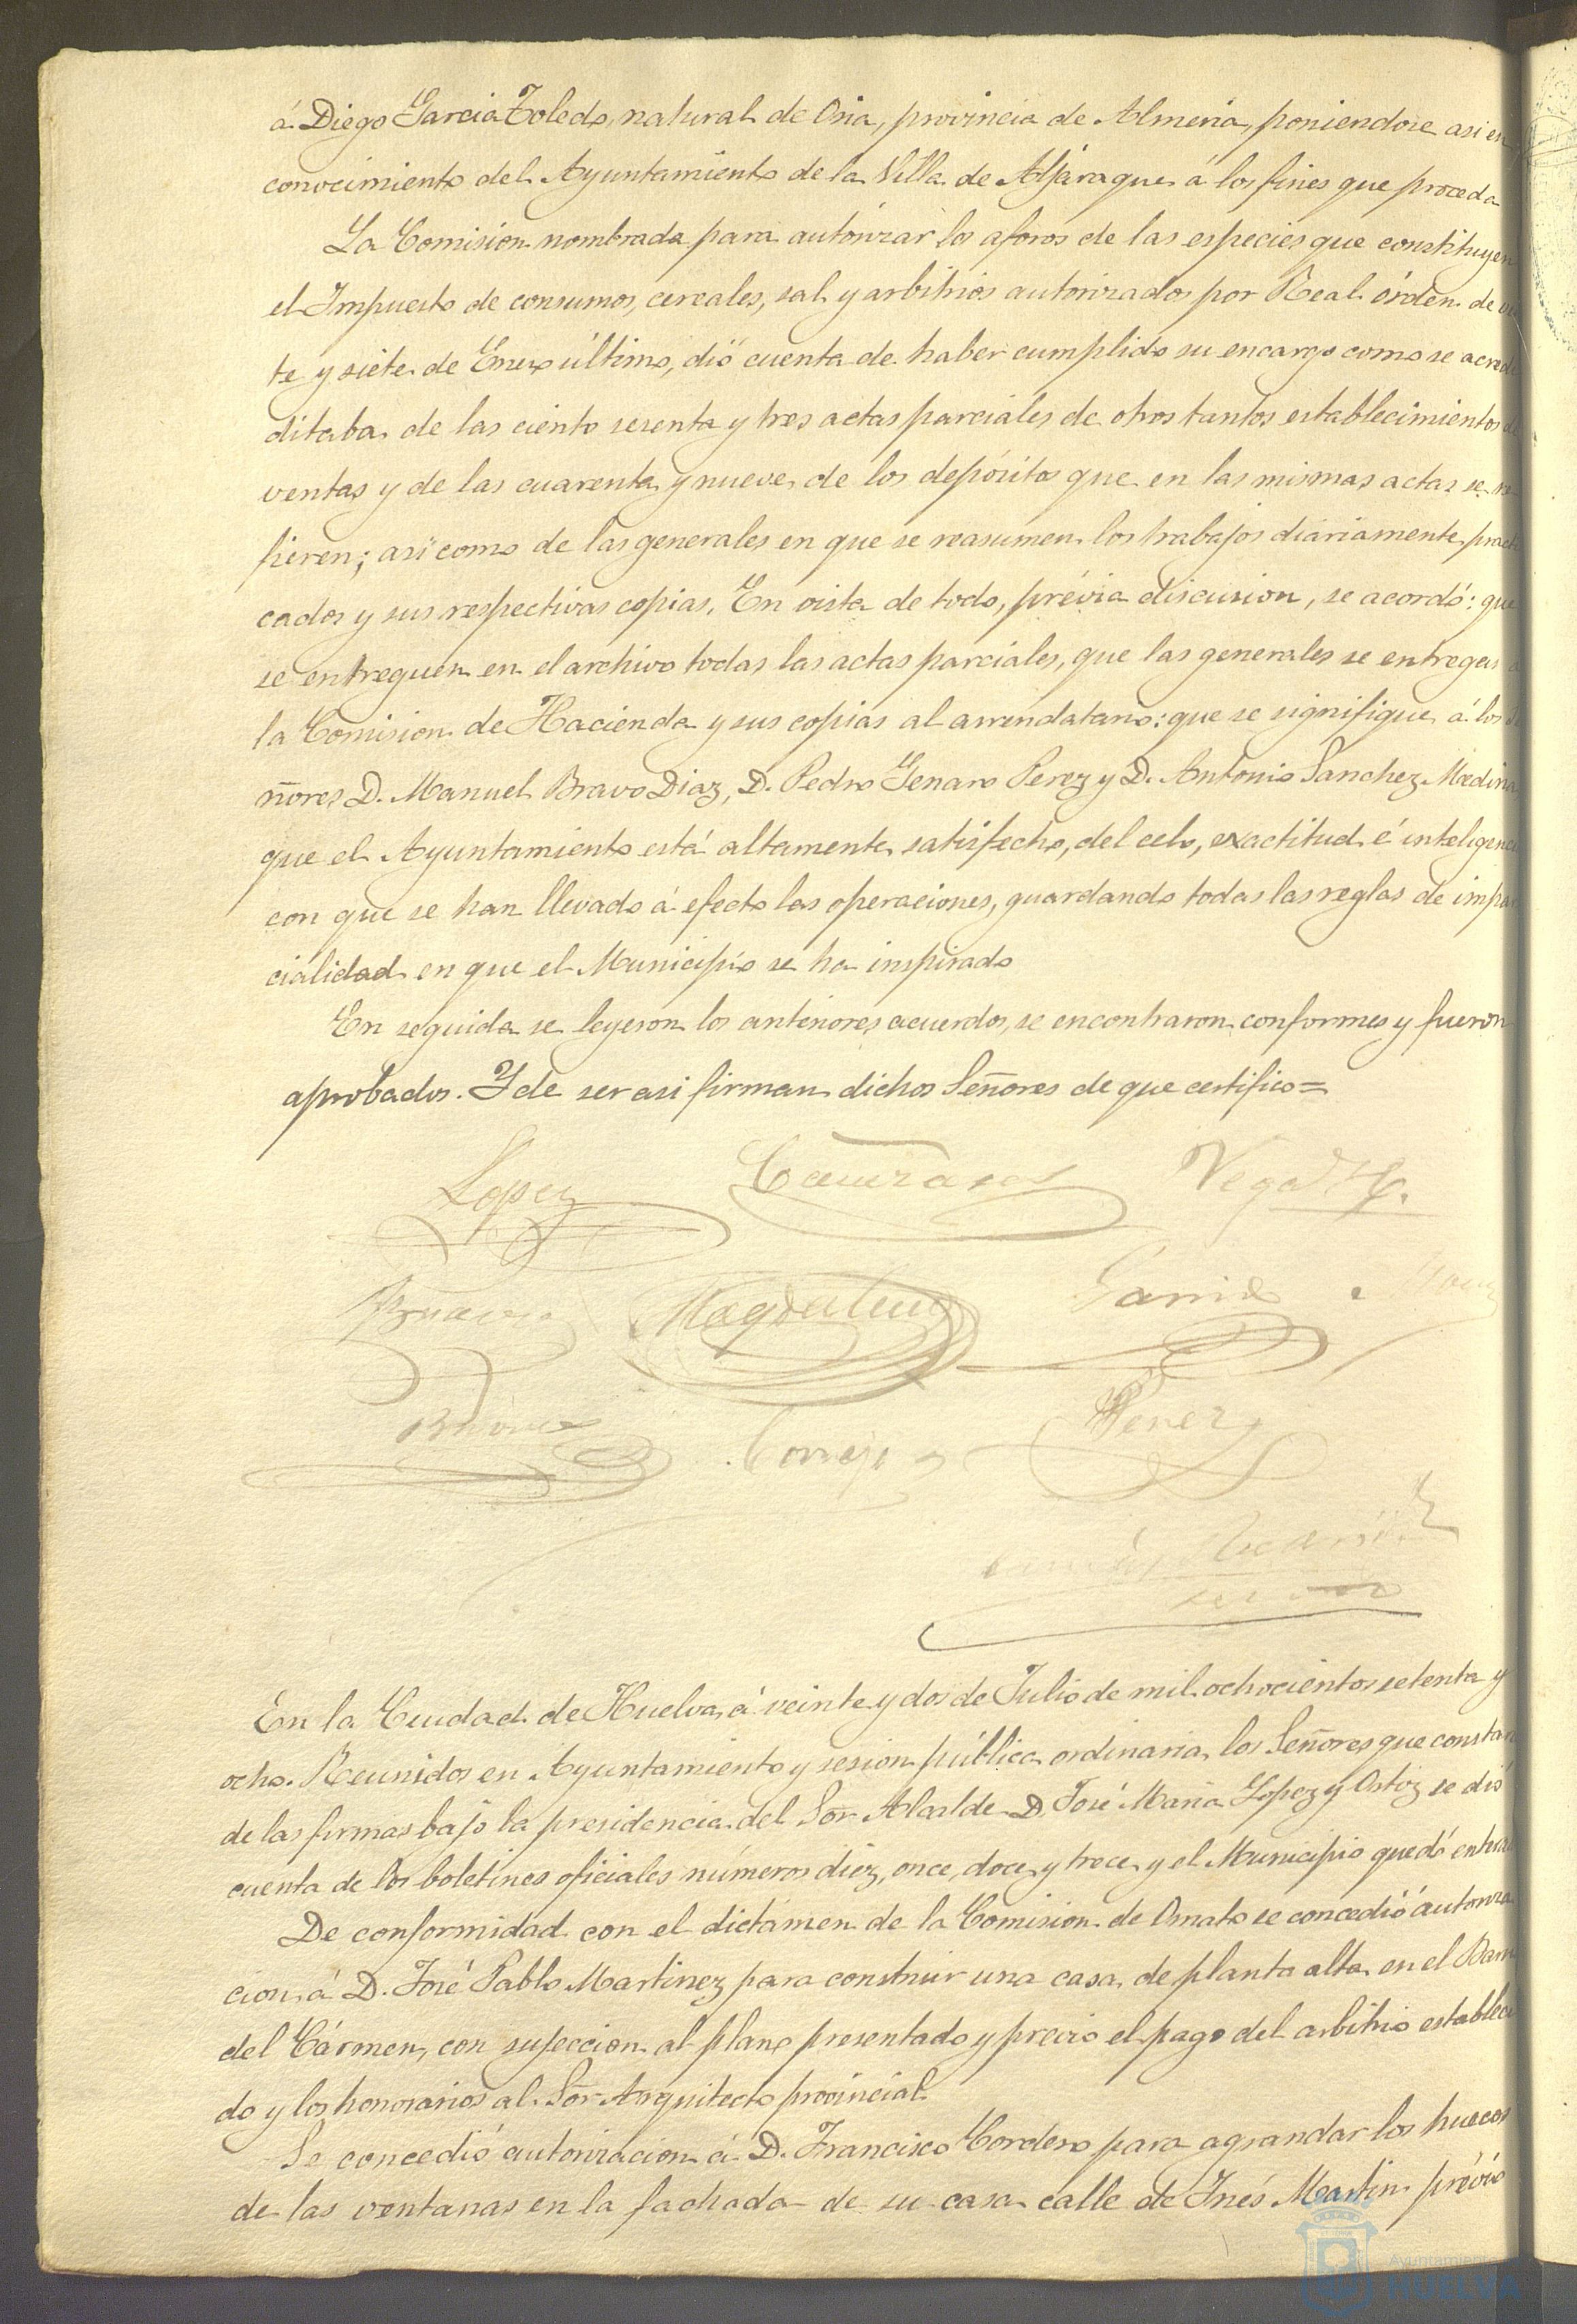 á Diego Garcia Toledo, natural de Oria, provincia de Almería, poniendose asi en
conocimiento del Ayuntamiento de la Villa de Aljaraque á los fines que proceda
La Comision nombrada para autorizar los aforos de las especies que constituyen
el Impuesto de consumos, cereales, sal y arbitrios autorizados por Real órden de
te y siete de Enero último, dió cuenta de haber cumplido su encargo como se acre
ditaba de las ciento sesenta y tres actas parciales de otros tantos establecimientos de
ventas y de las cuarenta y nueve de los depósitos que en las mismas actas se re
fieren; asi como de las generales en que se reasumen los trabajos diariamente practi
cados y sus respectivas copias. En vista de todo, prévia discusion, se acordó: que
se entreguen en el archivo todas las actas parciales, que las generales se entregen á
la Comision de Hacienda y sus copias al arrendatario: que se signifique á los Se
ñores D. Manuel Bravo Diaz, D. Pedro Genaro Perez y D. Antonio Sanchez Medina
que el Ayuntamiento está altamente satisfecho, del celo, exactitud é inteligencia
con que se han llevado á efecto las operaciones, guardando todas las reglas de impar
cialidad en que el Municipio se ha inspirado
En seguida se leyeron los anteriores acuerdos, se encontraron conformes y fueron
aprobados. Y de ser asi firman dichos Señores de que certifico=
Lopez Vega
Magdalena Garrido
Cornejo Perez
En la Ciudad de Huelva á veinte y dos de Julio de mil ochocientos setenta y
ocho. Reunidos en Ayuntamiento y sesion pública ordinaria los Señores que constan
de las firmas bajo la presidencia del Sor Alcalde D. José Maria Lopez y Ortiz se dió
cuenta de los boletines oficiales números diez, once, doce y trece y el Municipio quedó enterado
De conformidad con el dictámen de la Comision de Ornato se concedió autoriza
cion á D. José Pablo Martinez para construir una casa de planta alta en el Barrio
del Cármen, con sujeccion al plano presentado y previo el pago del arbitrio estableci
do y los honorarios al Sor Arquitecto provincial.
Se concedió autorizacion á D. Francisco Cordero para agrandar los huecos
de las ventanas en la fachada de su casa calle de Inés Martin prévio
Ayuntamiento
HUELVA